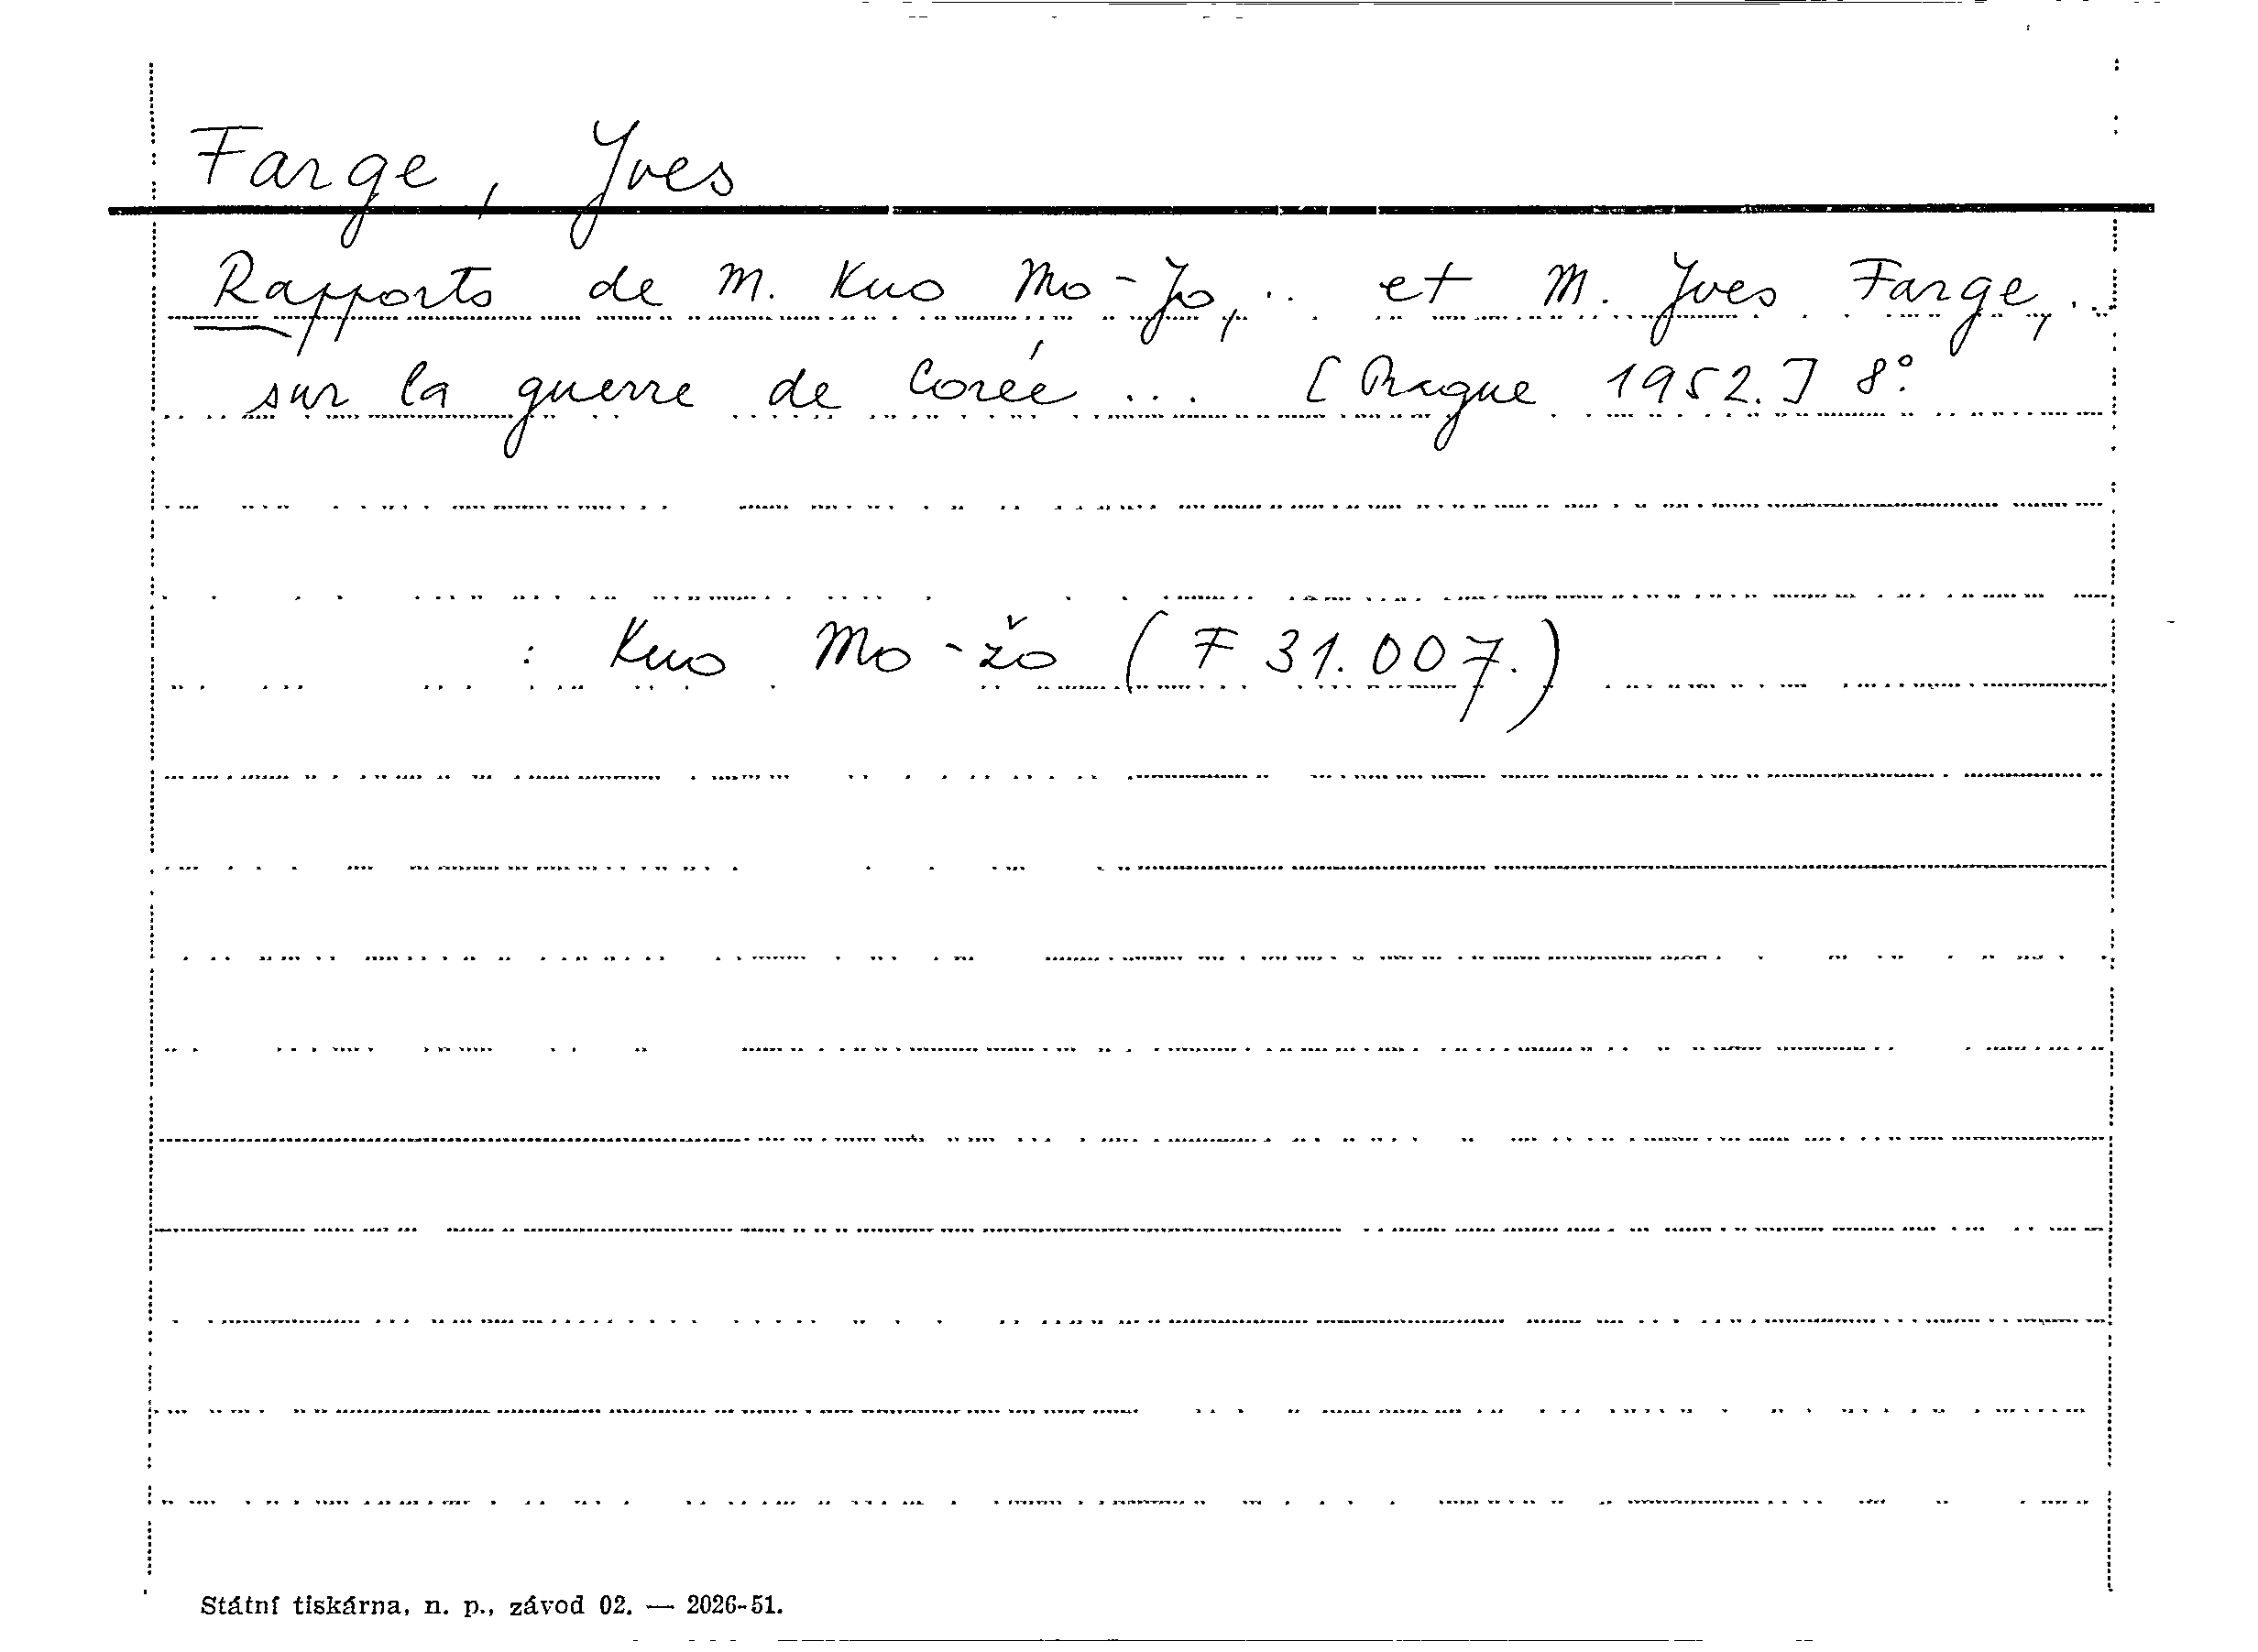 Farge, Yves
Rapports de M. Kuo Mo-Jo, .. et M. Yves Farge, ..
sur la guerre de Corée ... [Prague 1952.] 8°.
: Kuo Mo-žo (F 31.007.)
Státní tiskárna, n. p., závod 02. — 2026-51.